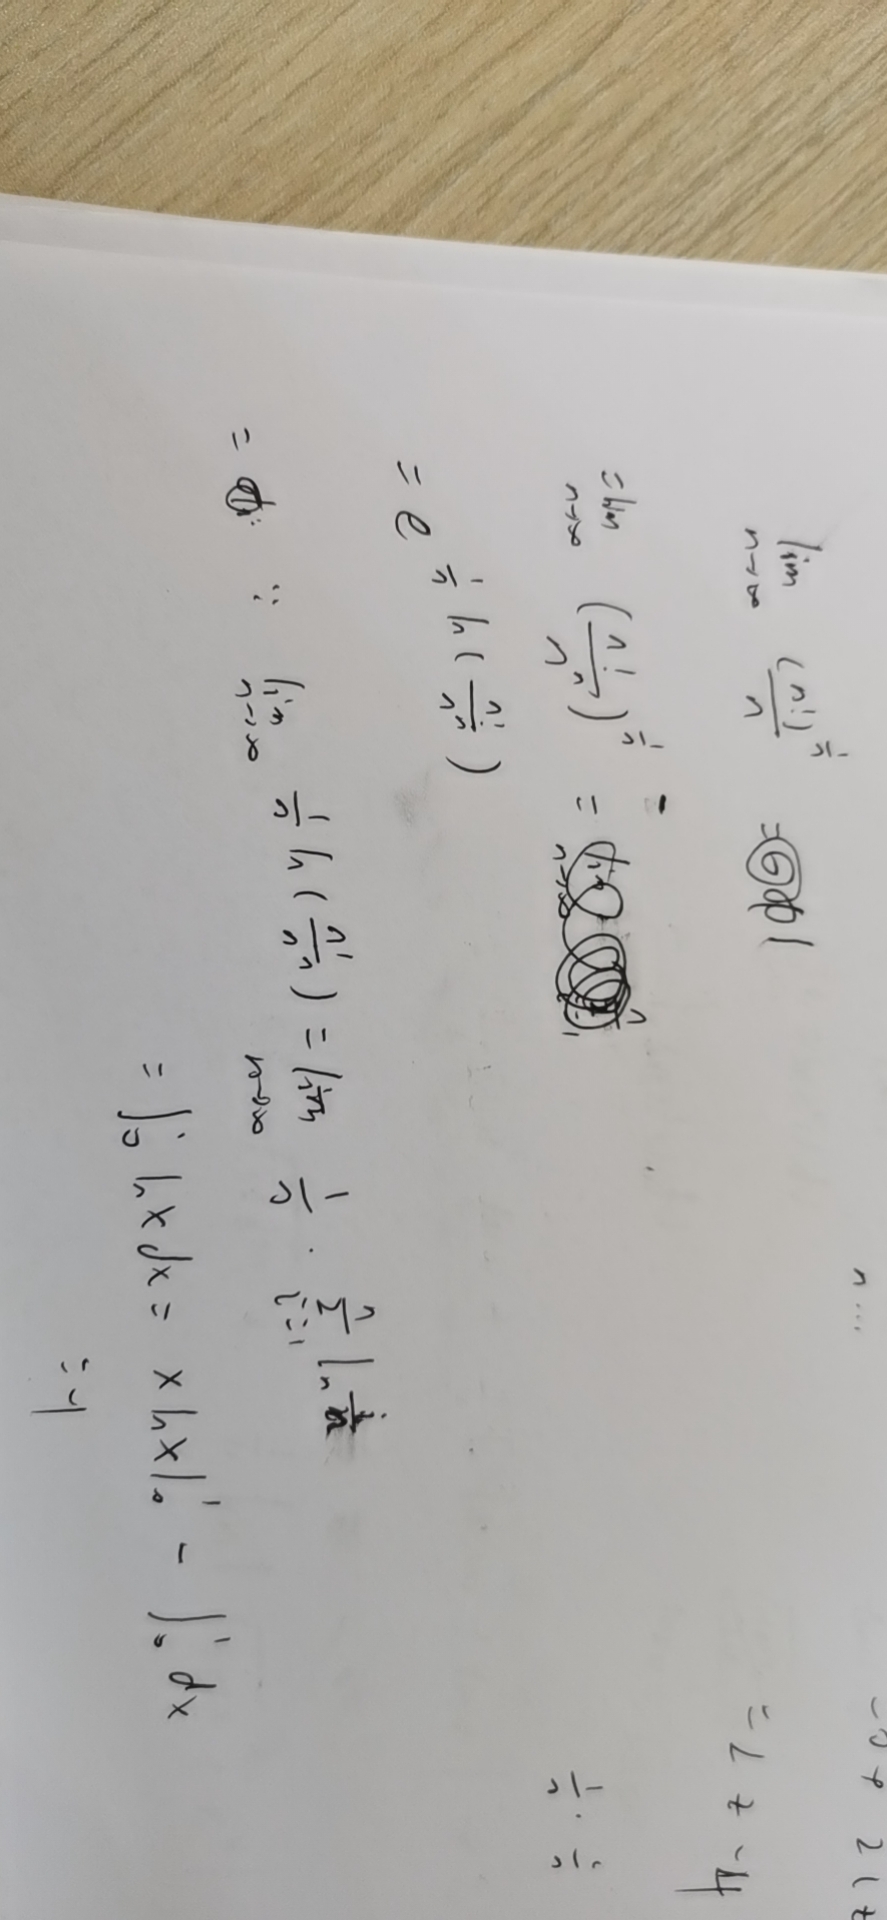 lim n→∞ (n!)^(1/n) / n =
= lim n→∞ (n!/n^n)^(1/n) =
= e^(1/n ln(n!/n^n))
= ∵ lim n→∞ 1/n ln(n!/n^n) = lim n→∞ 1/n · Σ_{i=1}^{n} ln i/n
= ∫_0^1 ln x dx = x ln x |_0^1 - ∫_0^1 dx
= -1
n ...
1/n · i/n